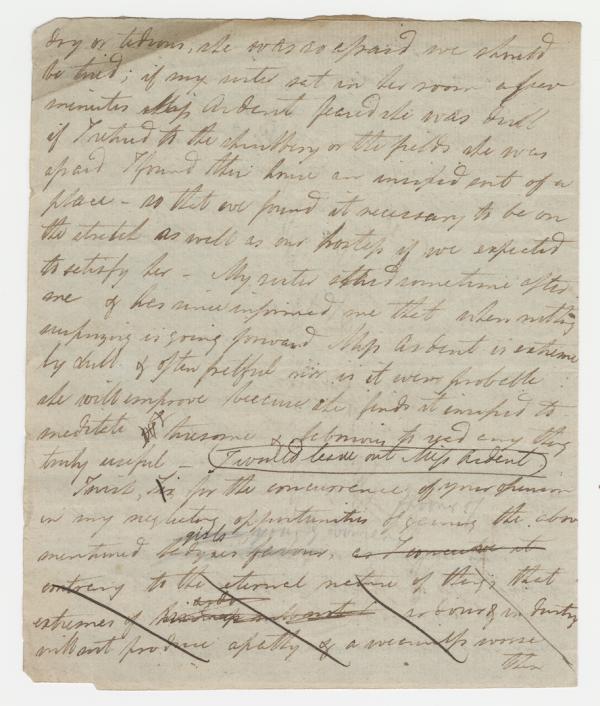 dry or tedious, she was so afraid we should
be tired; if my sister sat in her room a few
minutes Miss Ardent feared she was dull
if I retired to the shrubbery or the fields she was
afraid I found their house an insipid sort of a
place – so that we found it necessary to be on
the stretch as well as our hostess if we expected
to satisfy her – My sister staid sometime after
me & has since informed me that when nothing
surprizing is going forward Miss Ardent is extreme
ly dull & often fretful nor is it even probable
she will improve because she finds it insipid to
meditate tiresome & laborious to read any thing
truly useful – (I would leave out Miss Ardent)
I wish, Sir for the concurrence of your opinion
in my neglecting opportunities of gaining the above
mentioned girls favour, as I conceive it
contrary to the eternal nature of things that
extremes of labour & industry
will not produce apathy & a weariness worse
than